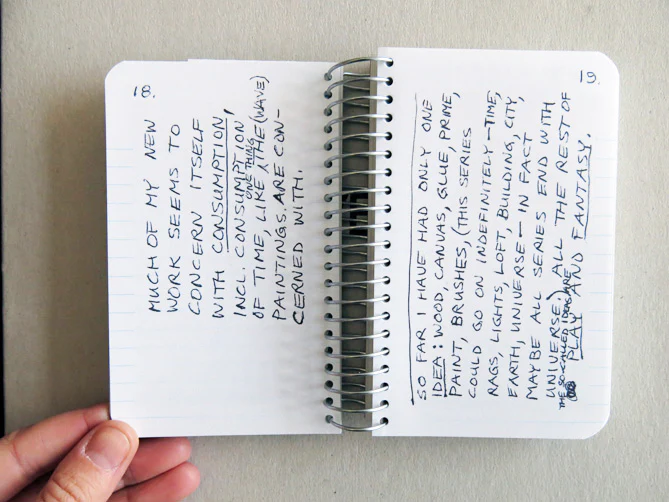 18.
MUCH OF MY NEW
WORK SEEMS TO
CONCERN ITSELF
WITH CONSUMPTION,
INCL. CONSUMPTION
ONE THING
OF TIME, LIKE THE (WAVE)
PAINTINGS. ARE CON-
CERNED WITH.
19.
SO FAR I HAVE HAD ONLY ONE
IDEA: WOOD, CANVAS, GLUE, PRIME,
PAINT, BRUSHES, (THIS SERIES
COULD GO ON INDEFINITELY – TIME,
RAGS, LIGHTS, LOFT, BUILDING, CITY,
EARTH, UNIVERSE – IN FACT
MAYBE ALL SERIES END WITH
UNIVERSE.) ALL THE REST OF
THE SO-CALLED IDEAS ARE
PLAY AND FANTASY.